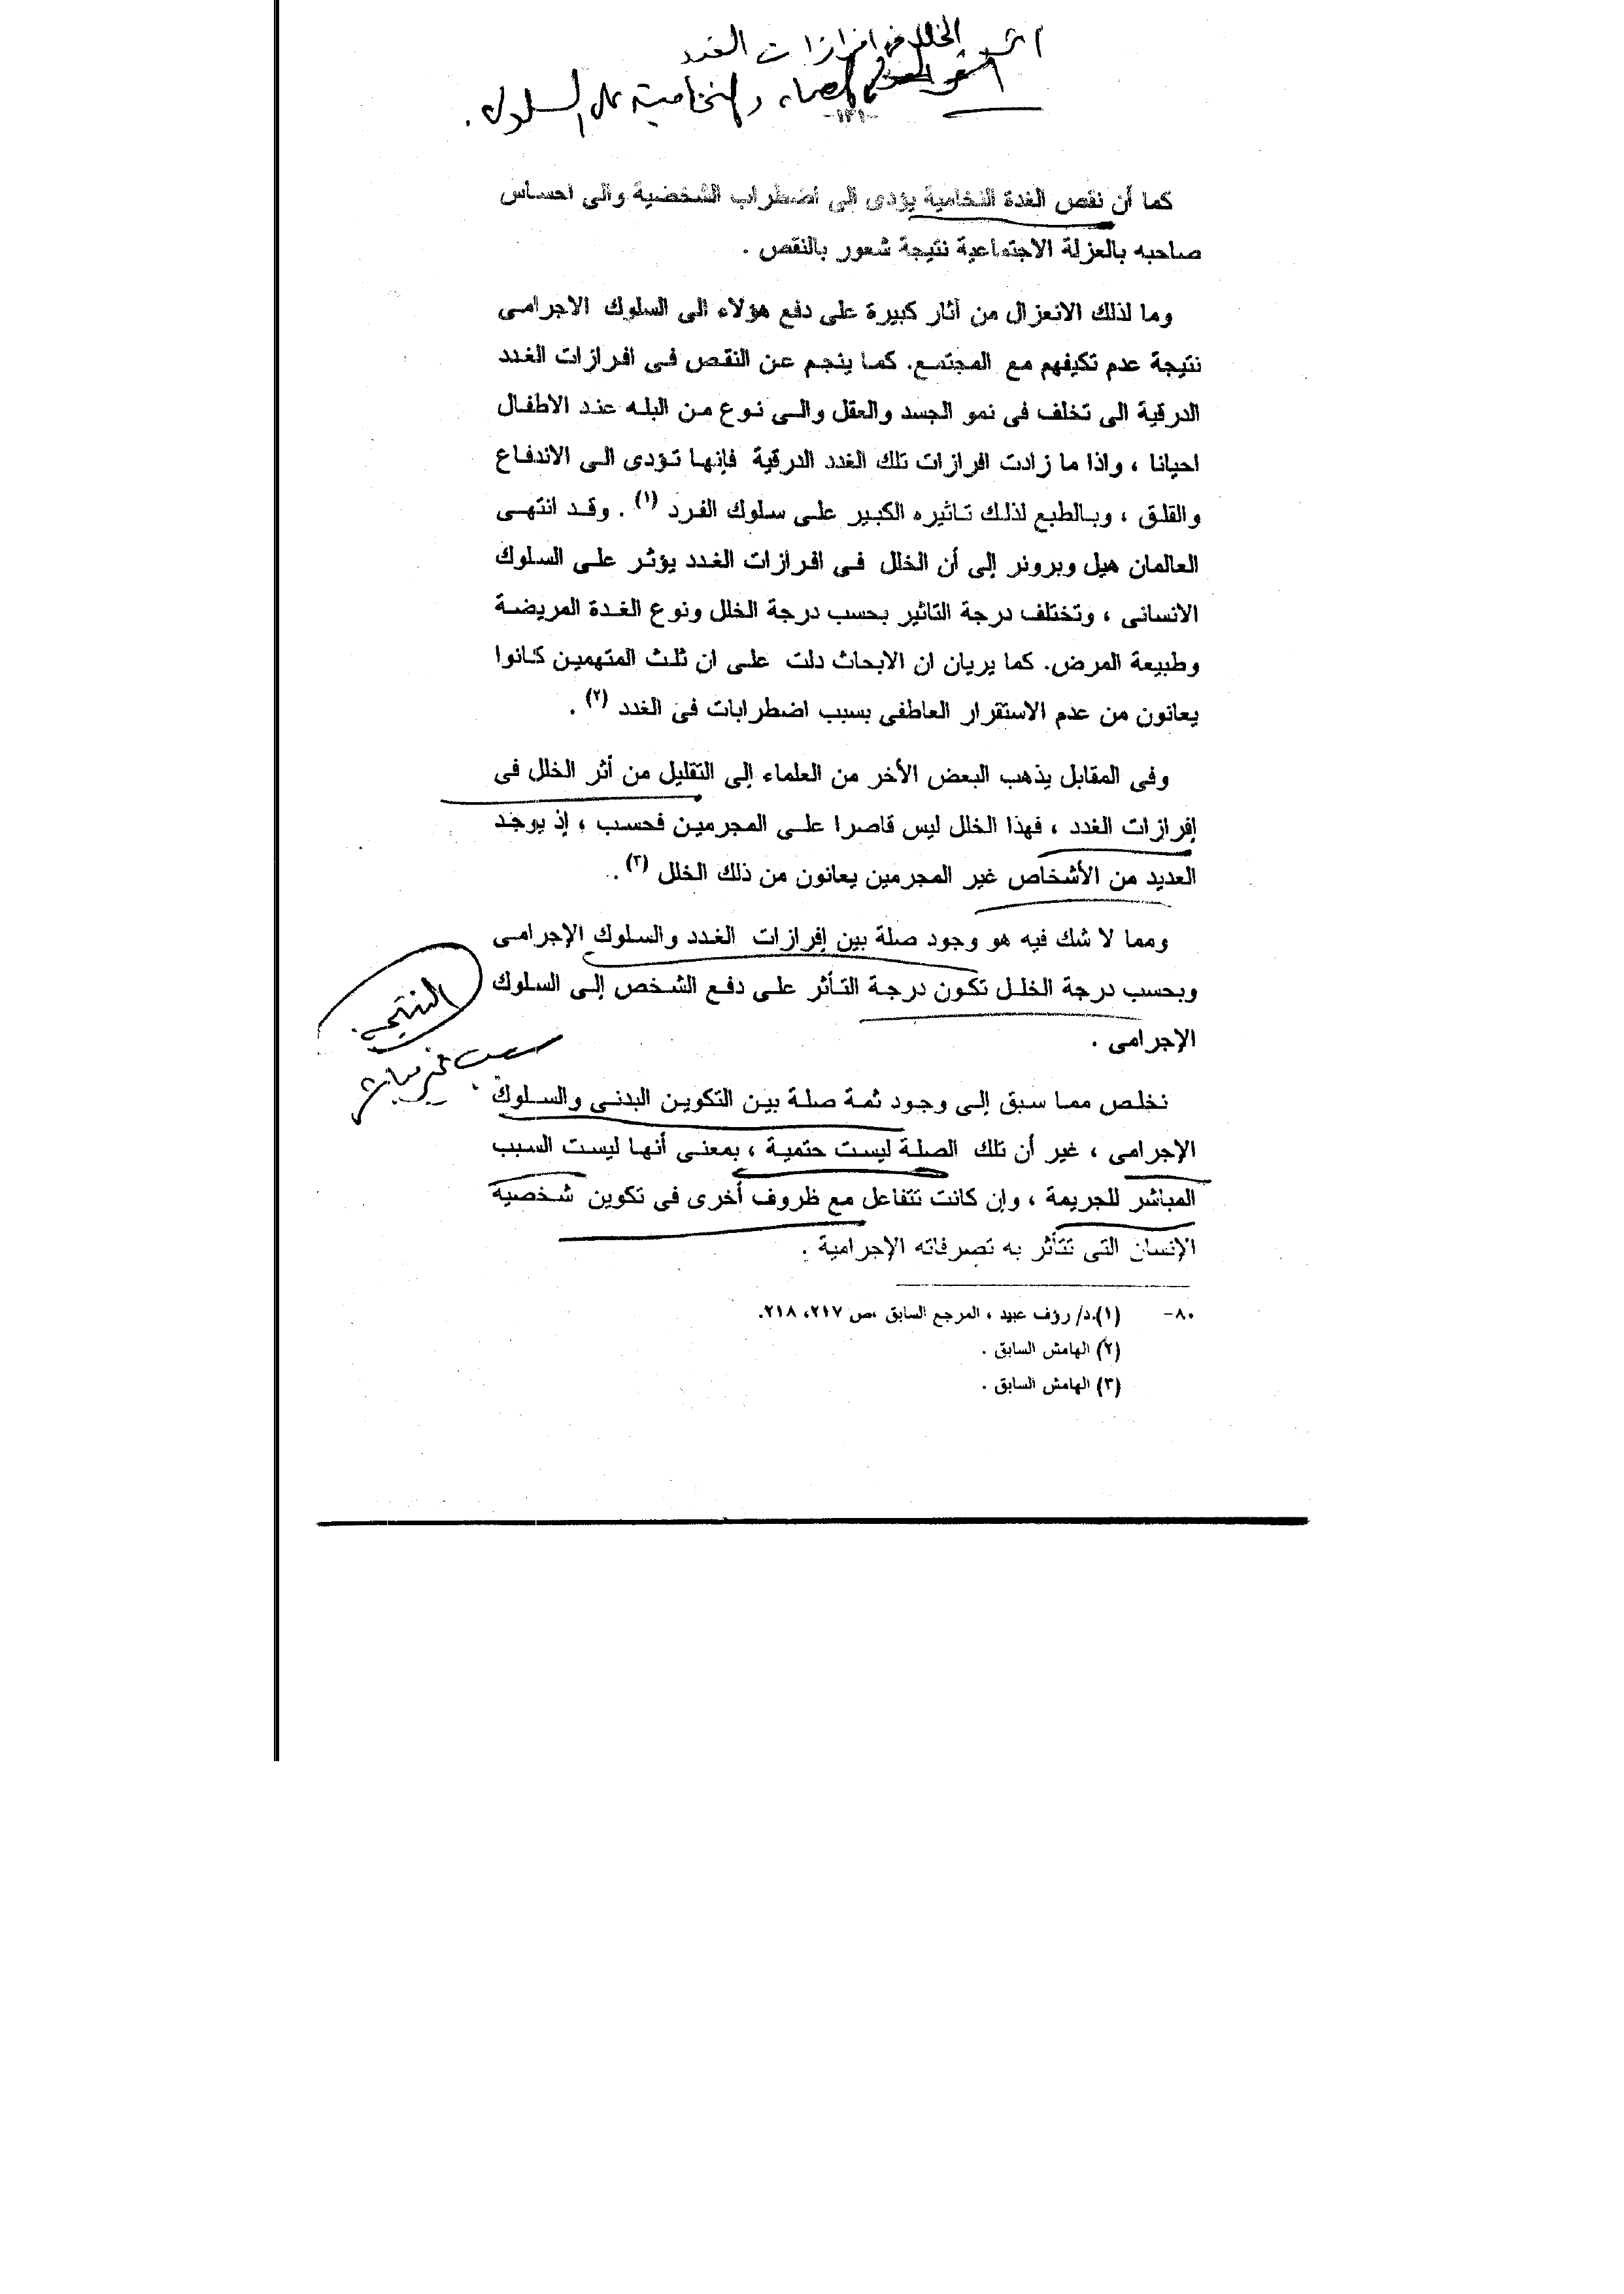 اثر الخلل في افرازات الغدد
الصماء والنخامية على السلوك.
-١٣١-
كما أن نقص الغدة النخامية يؤدى الى اضطراب الشخصية والى احساس
صاحبه بالعزلة الاجتماعية نتيجة شعور بالنقص .
وما لذلك الانعزال من آثار كبيرة على دفع هؤلاء الى السلوك الاجرامى
نتيجة عدم تكيفهم مع المجتمع. كما ينجم عن النقص فى افرازات الغدد
الدرقية الى تخلف فى نمو الجسد والعقل والى نوع من البله عند الاطفال
احيانا ، واذا ما زادت افرازات تلك الغدد الدرقية فإنها تؤدى الى الاندفاع
والقلق ، وبالطبع لذلك تاثيره الكبير على سلوك الفرد (١) . وقد انتهى
العالمان هيل وبرونر إلى أن الخلل فى افرازات الغدد يؤثر على السلوك
الانسانى ، وتختلف درجة التاثير بحسب درجة الخلل ونوع الغدة المريضة
وطبيعة المرض. كما يريان ان الابحاث دلت على ان ثلث المتهمين كانوا
يعانون من عدم الاستقرار العاطفى بسبب اضطرابات فى الغدد (٢) .
وفى المقابل يذهب البعض الأخر من العلماء إلى التقليل من أثر الخلل فى
إفرازات الغدد ، فهذا الخلل ليس قاصرا على المجرمين فحسب ، إذ يوجد
العديد من الأشخاص غير المجرمين يعانون من ذلك الخلل (٣) .
ومما لا شك فيه هو وجود صلة بين إفرازات الغدد والسلوك الإجرامى
وبحسب درجة الخلل تكون درجة التأثر على دفع الشخص إلى السلوك
الإجرامى .
النتيجة
سبب غير مباشر
نخلص مما سبق إلى وجود ثمة صلة بين التكوين البدنى والسلوك
الإجرامى ، غير أن تلك الصلة ليست حتمية ، بمعنى أنها ليست السبب
المباشر للجريمة ، وإن كانت تتفاعل مع ظروف أخرى فى تكوين شخصية
الإنسان التى تتأثر به تصرفاته الإجرامية .
٨٠- (١).د/ رؤف عبيد ، المرجع السابق ،ص ٢١٧، ٢١٨.
(٢) الهامش السابق .
(٣) الهامش السابق .